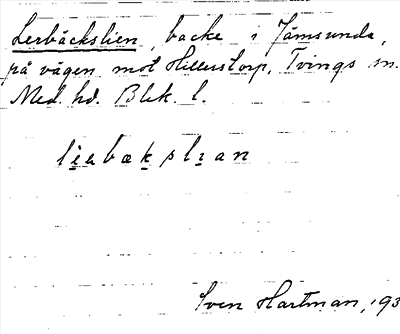 Lerbäckslien, backe i Jämsunda,
på vägen mot Hillerstorp, Tvings sn.
Med. hd. Blek. l.
li̲abæk̲slɪ̲an
Sven Hartman, 193